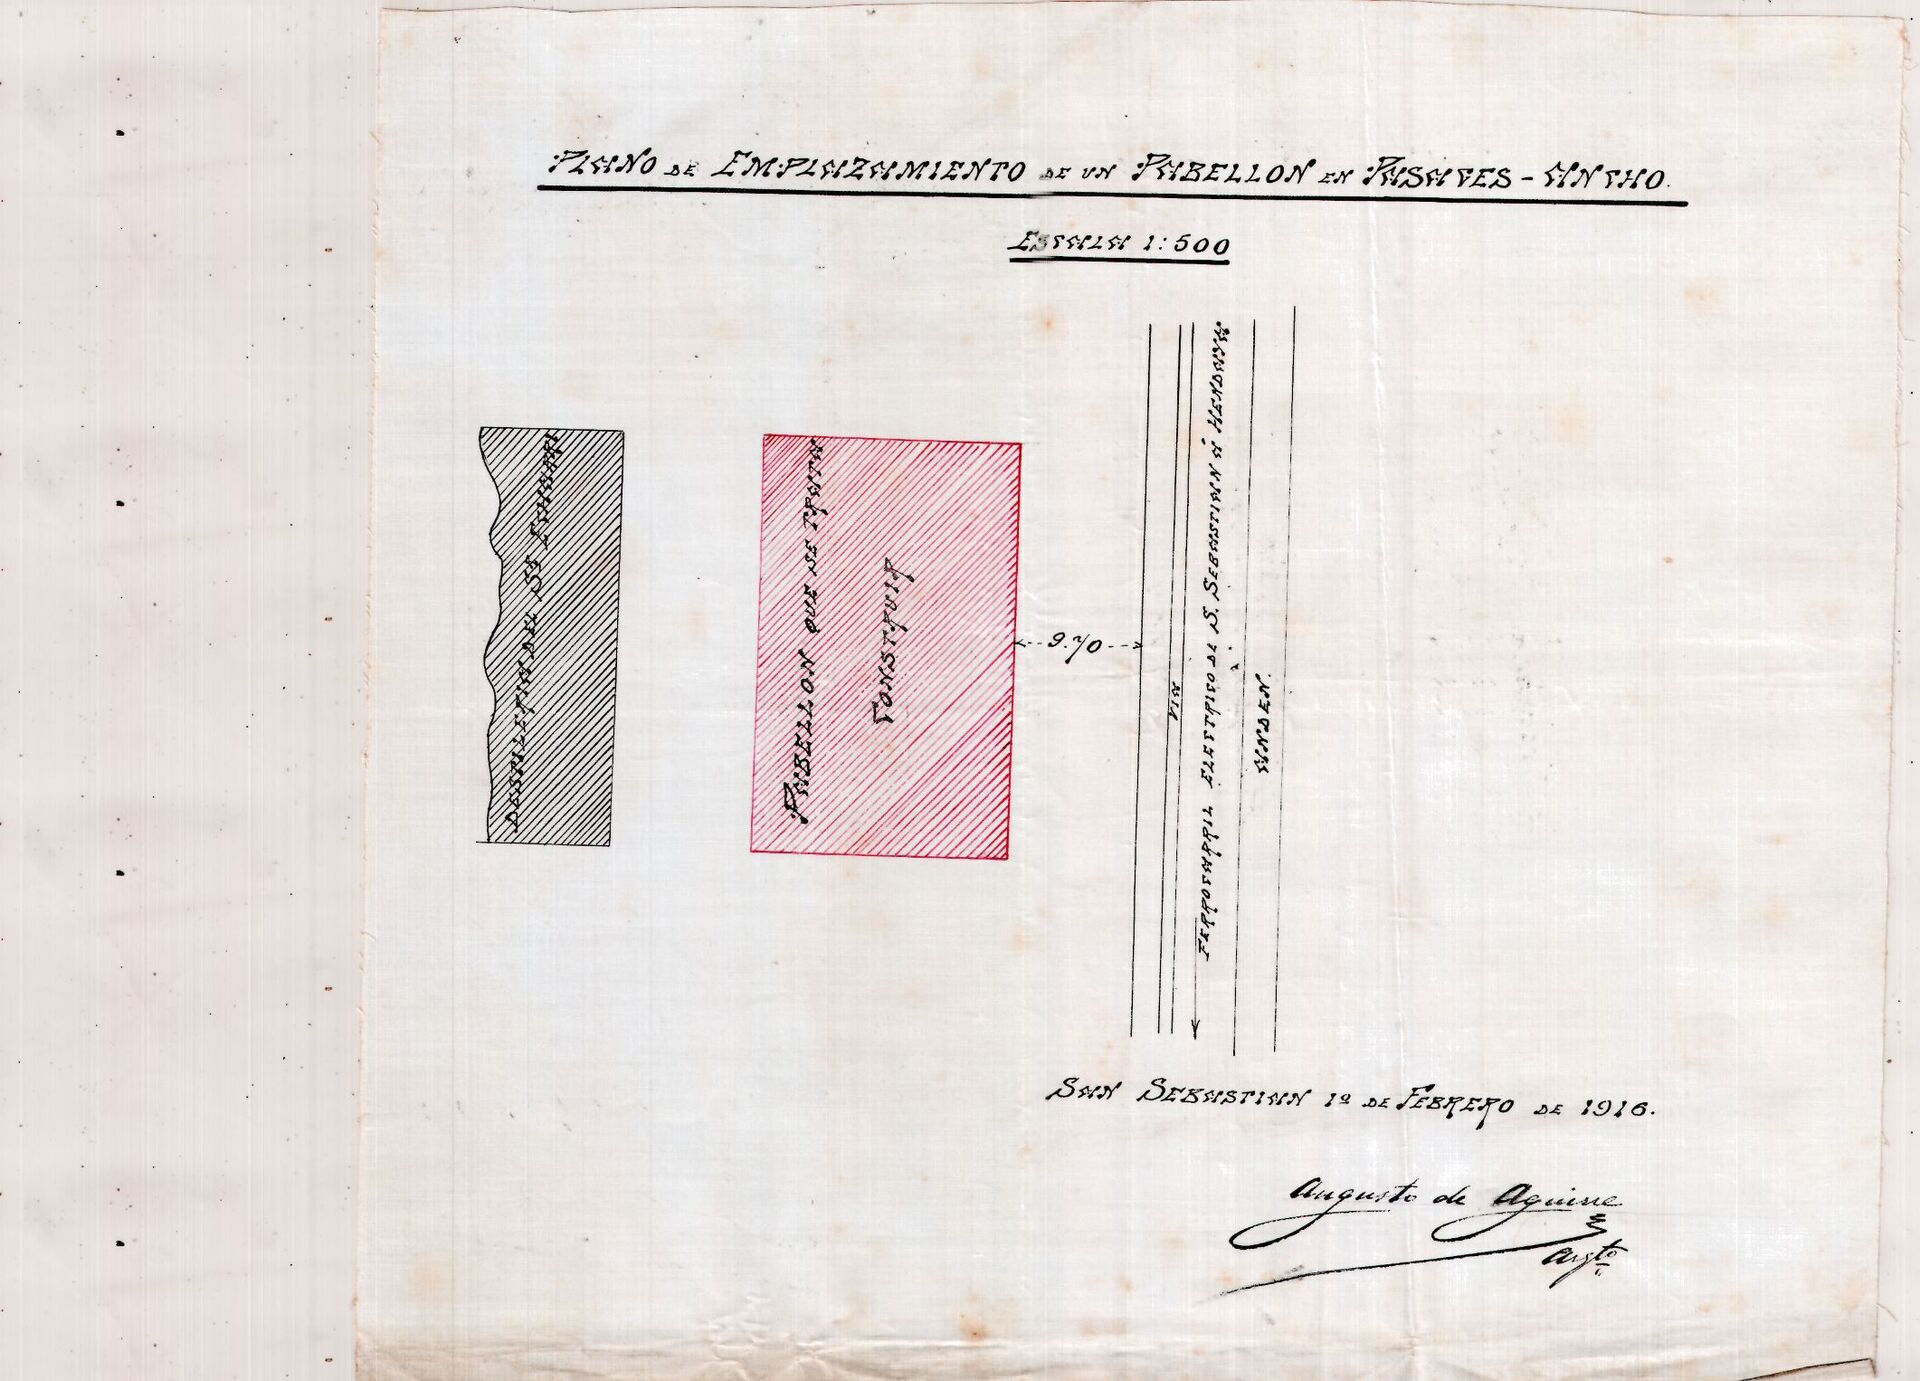 PLANO DE EMPLAZAMIENTO DE UN PABELLON EN PASAGES - ANCHO.
ESCALA 1:500
PABELLON QUE SE TRATA
CONSTRUIR
9.70
VIA
FERROCARRIL ELECTRICO DE S. SEBASTIAN Á HENDAYA
ANDEN
SAN SEBASTIAN 1º DE FEBRERO DE 1916.
Augusto de Aguirre
Arqto